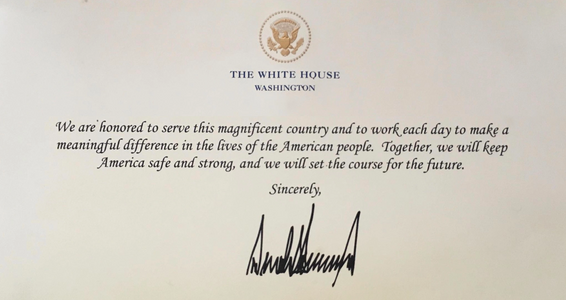 THE WHITE HOUSE
WASHINGTON
We are honored to serve this magnificent country and to work each day to make a
meaningful difference in the lives of the American people. Together, we will keep
America safe and strong, and we will set the course for the future.
Sincerely,